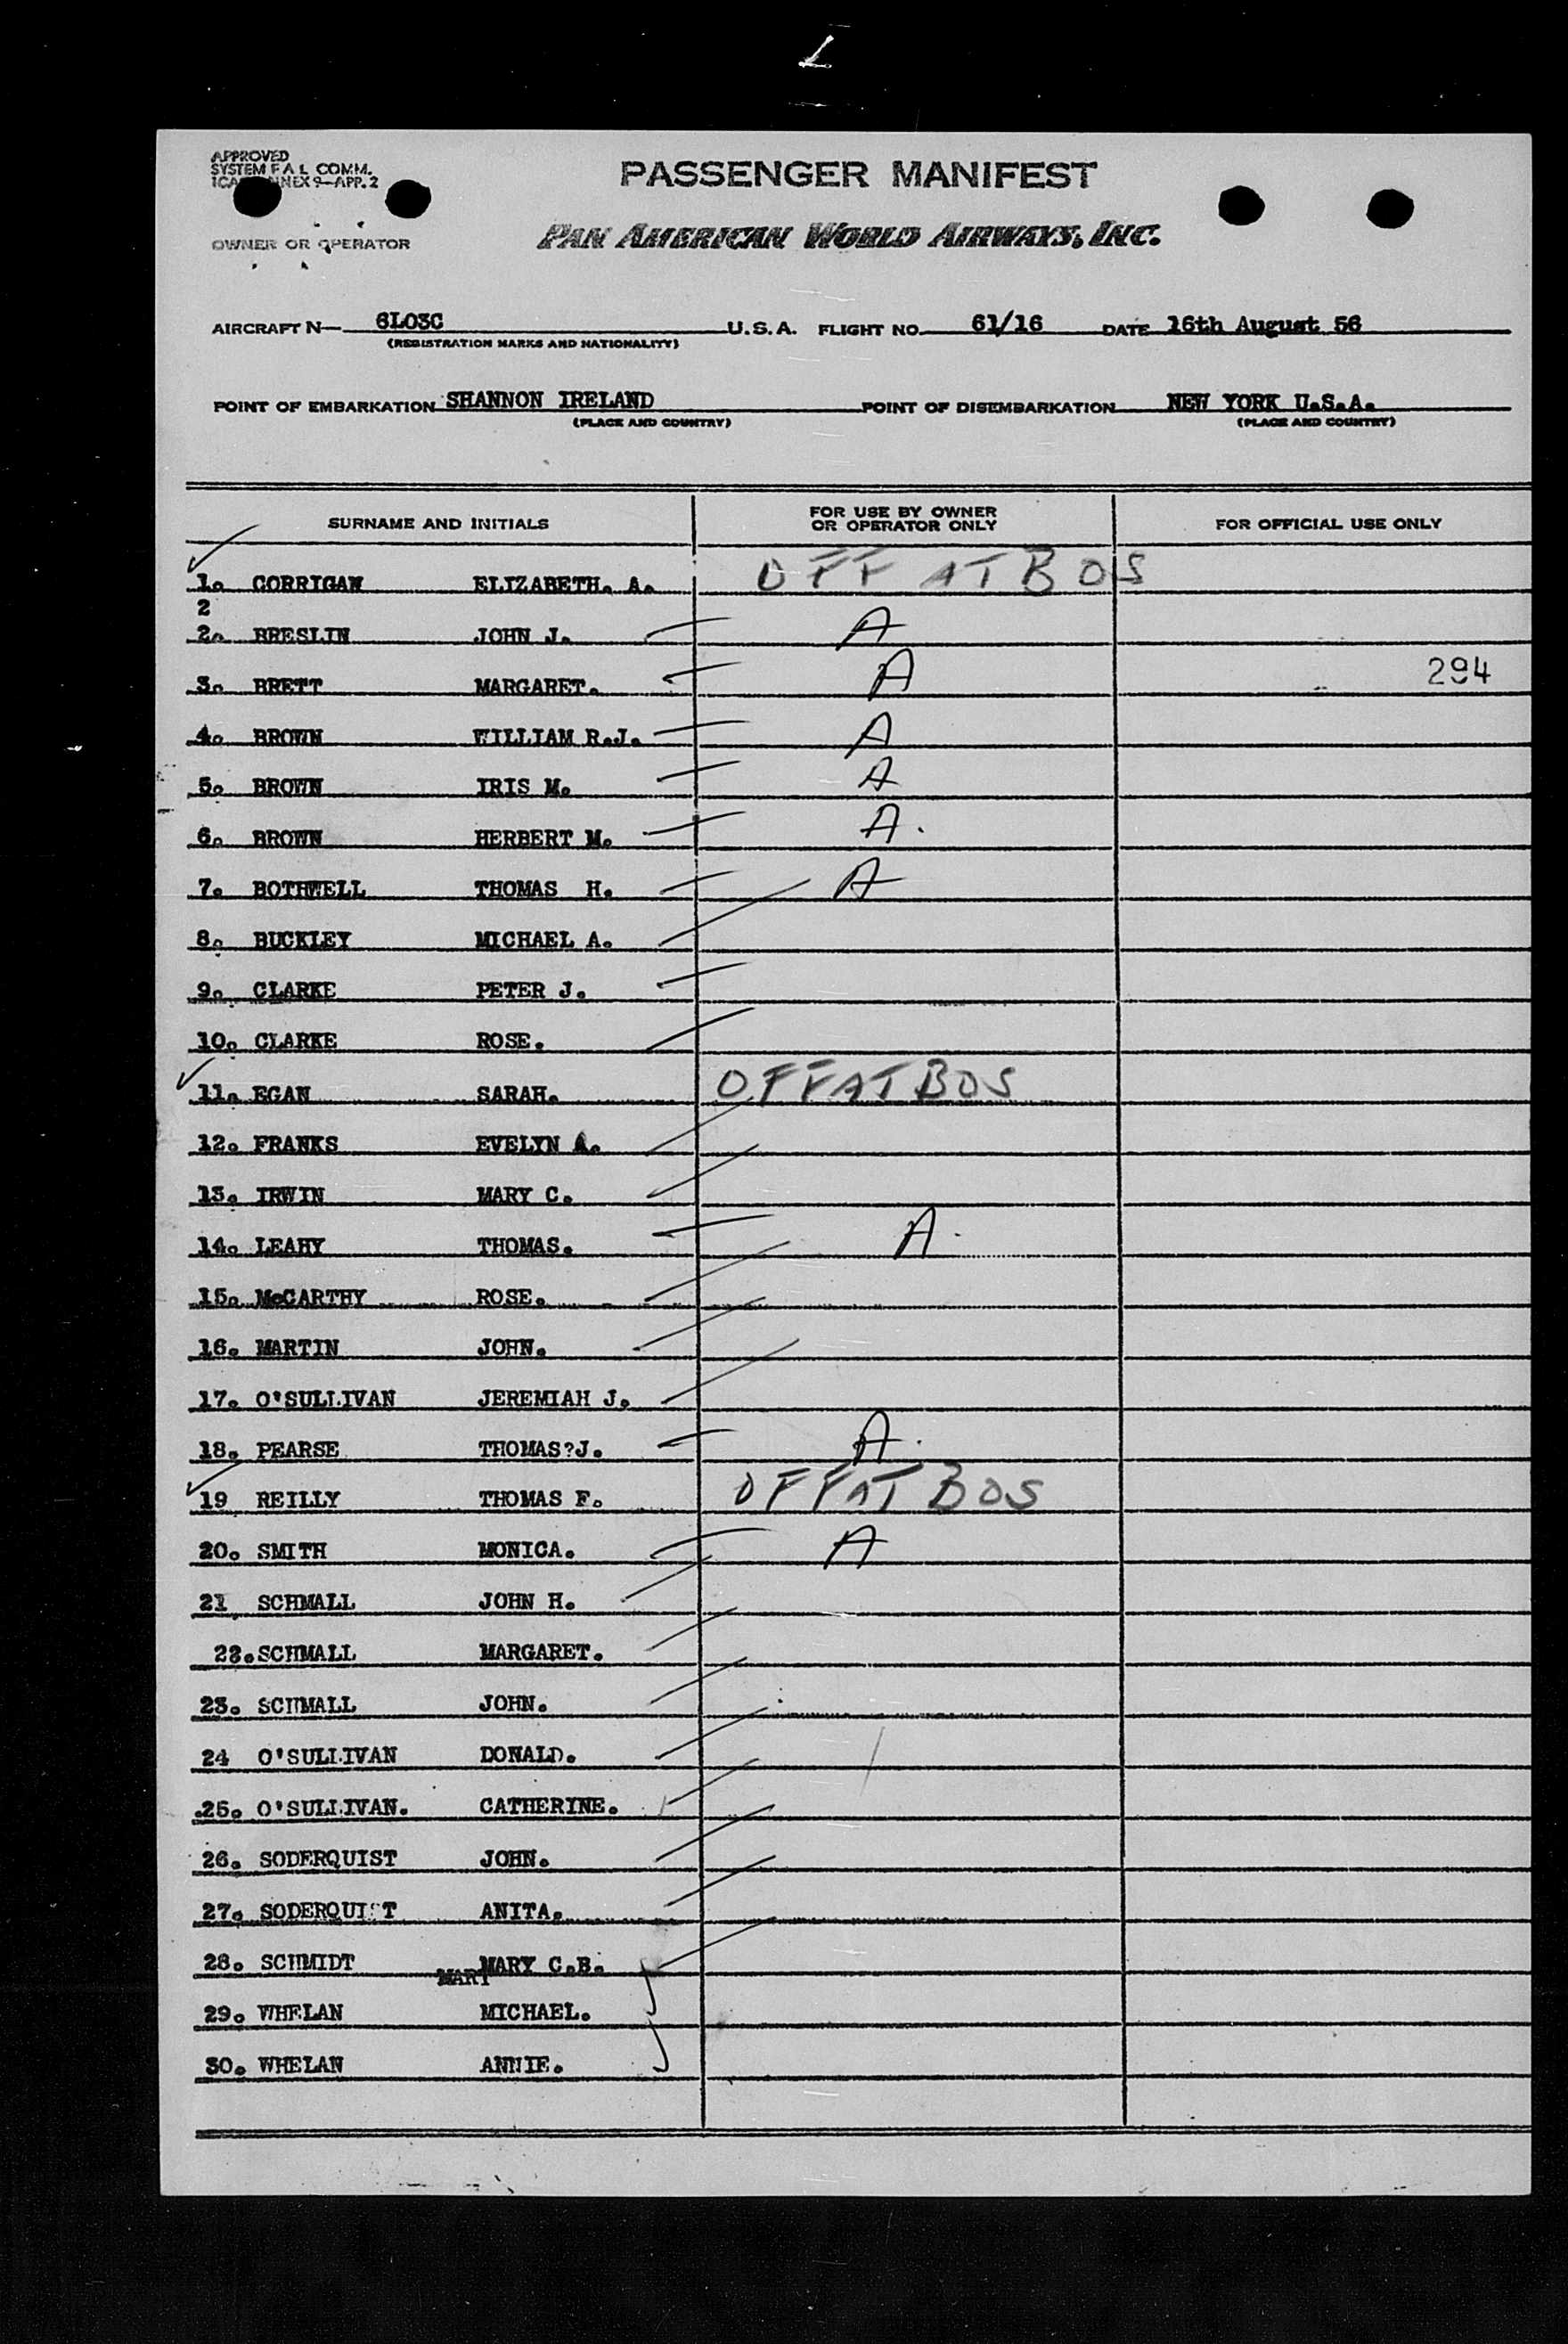 1
APPROVED
SYSTEM F A L COMM.
ANNEX 9—APP. 2
PASSENGER MANIFEST
OWNER OR OPERATOR
PAN AMERICAN WORLD AIRWAYS, INC.
AIRCRAFT N— 6LO3C U.S.A. FLIGHT NO. 61/16 DATE 16th August 56
(REGISTRATION MARKS AND NATIONALITY)
POINT OF EMBARKATION SHANNON IRELAND POINT OF DISEMBARKATION NEW YORK U.S.A.
(PLACE AND COUNTRY) (PLACE AND COUNTRY)
SURNAME AND INITIALS FOR USE BY OWNER OR OPERATOR ONLY FOR OFFICIAL USE ONLY
1. CORRIGAN ELIZABETH. A. OFF AT BOS
2
2. BRESLIN JOHN J. A
3. BRETT MARGARET. A 294
4. BROWN WILLIAM R.J. A
5. BROWN IRIS M. A
6. BROWN HERBERT M. A.
7. BOTHWELL THOMAS H. A
8. BUCKLEY MICHAEL A.
9. CLARKE PETER J.
10. CLARKE ROSE.
11. EGAN SARAH. OFF AT BOS
12. FRANKS EVELYN A.
13. IRWIN MARY C.
14. LEAHY THOMAS. A.
15. McCARTHY ROSE.
16. MARTIN JOHN.
17. O'SULLIVAN JEREMIAH J.
18. PEARSE THOMAS?J. A.
19 REILLY THOMAS F. OFF AT BOS
20. SMITH MONICA. A
21 SCHMALL JOHN H.
22. SCHMALL MARGARET.
23. SCHMALL JOHN.
24 O'SULLIVAN DONALD.
.25. O'SULLIVAN. CATHERINE.
26. SODERQUIST JOHN.
27. SODERQUIST ANITA.
28. SCHMIDT MARY C.B.
MARY
29. WHELAN MICHAEL.
30. WHELAN ANNIE.